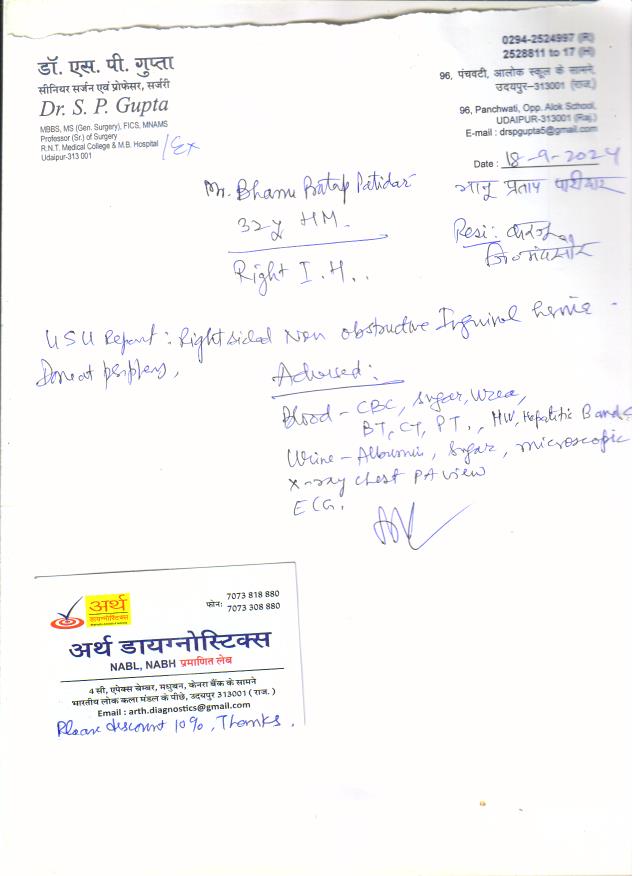 डॉ. एस. पी. गुप्ता
सीनियर सर्जन एवं प्रोफेसर, सर्जरी
Dr. S. P. Gupta
MBBS, MS (Gen. Surgery), FICS, MNAMS
Professor (Sr.) of Surgery
R.N.T. Medical College & M.B. Hospital /Ex
Udaipur-313 001
0294-2524997 (R)
2528811 to 17 (H)
96, पंचवटी, आलोक स्कूल के सामने,
उदयपुर-313001 (राज.)
96, Panchwati, Opp. Alok School,
UDAIPUR-313001 (Raj.)
E-mail : drspgupta5@gmail.com
Date : 18-9-2024
Mr. Bhanu Pratap Patidar
भानु प्रताप पाटीदार
32y HM.
Resi:
जि०मंदसौर
Right I.H..
USG Report: Right sided Non obstructive Inguinal hernia -
Done at periphery,
Advised:
Blood - CBC, Sugar, Urea,
BT, CT, PT., HIV, Hepatitic Bands
Urine - Albumin, Sugar, microscopic
X-ray chest PA view
ECG.
अर्थ
डायग्नोस्टिक्स
फोन: 7073 818 880
7073 308 880
अर्थ डायग्नोस्टिक्स
NABL, NABH प्रमाणित लेब
4 सी, एपेक्स चेम्बर, मधुबन, केनरा बैंक के सामने
भारतीय लोक कला मंडल के पीछे, उदयपुर 313001 ( राज. )
Email : arth.diagnostics@gmail.com
Please discount 10%, Thanks.